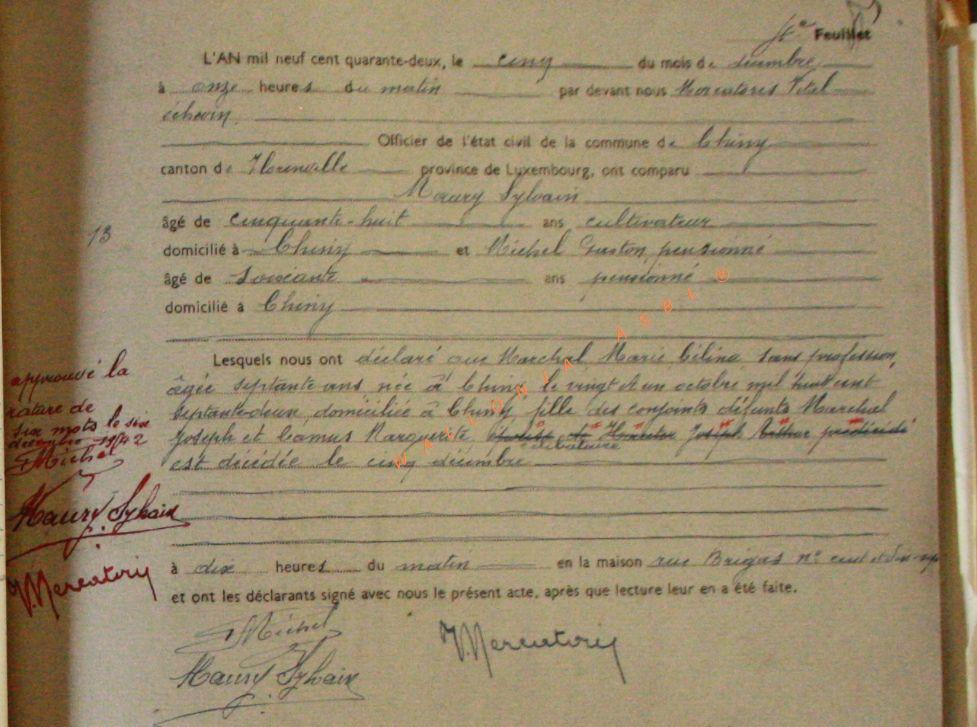 Feuillet
L'AN mil neuf cent quarante-deux, le cinq du mois de décembre
à onze heures du matin par devant nous Mercatoris Vital
échevin
Officier de l'état civil de la commune de Chiny
canton de Florenville province de Luxembourg, ont comparu
Maury Sylvain
âgé de cinquante-huit ans cultivateur
13
domicilié à Chiny et Michel Gaston, pensionné
âgé de soixante ans pensionné
domicilié à Chiny
Lesquels nous ont déclaré que Marechal Marie Célina sans profession,
âgée septante ans née à Chiny le vingt et un octobre mil huit cent
septante-deux domiciliée à Chiny fille des conjoints défunts Marechal
Joseph et Camus Marguerite Joseph Arthur prédécédé
célibataire
est décédée le cinq décembre
approuvé la
rature de
six mots le six
décembre 1942
Michel
Maury Sylvain
V. Mercatoris
à dix heures du matin en la maison rue Brigas n° cent et
et ont les déclarants signé avec nous le présent acte, après que lecture leur en a été faite.
Michel
V. Mercatoris
Maury Sylvain